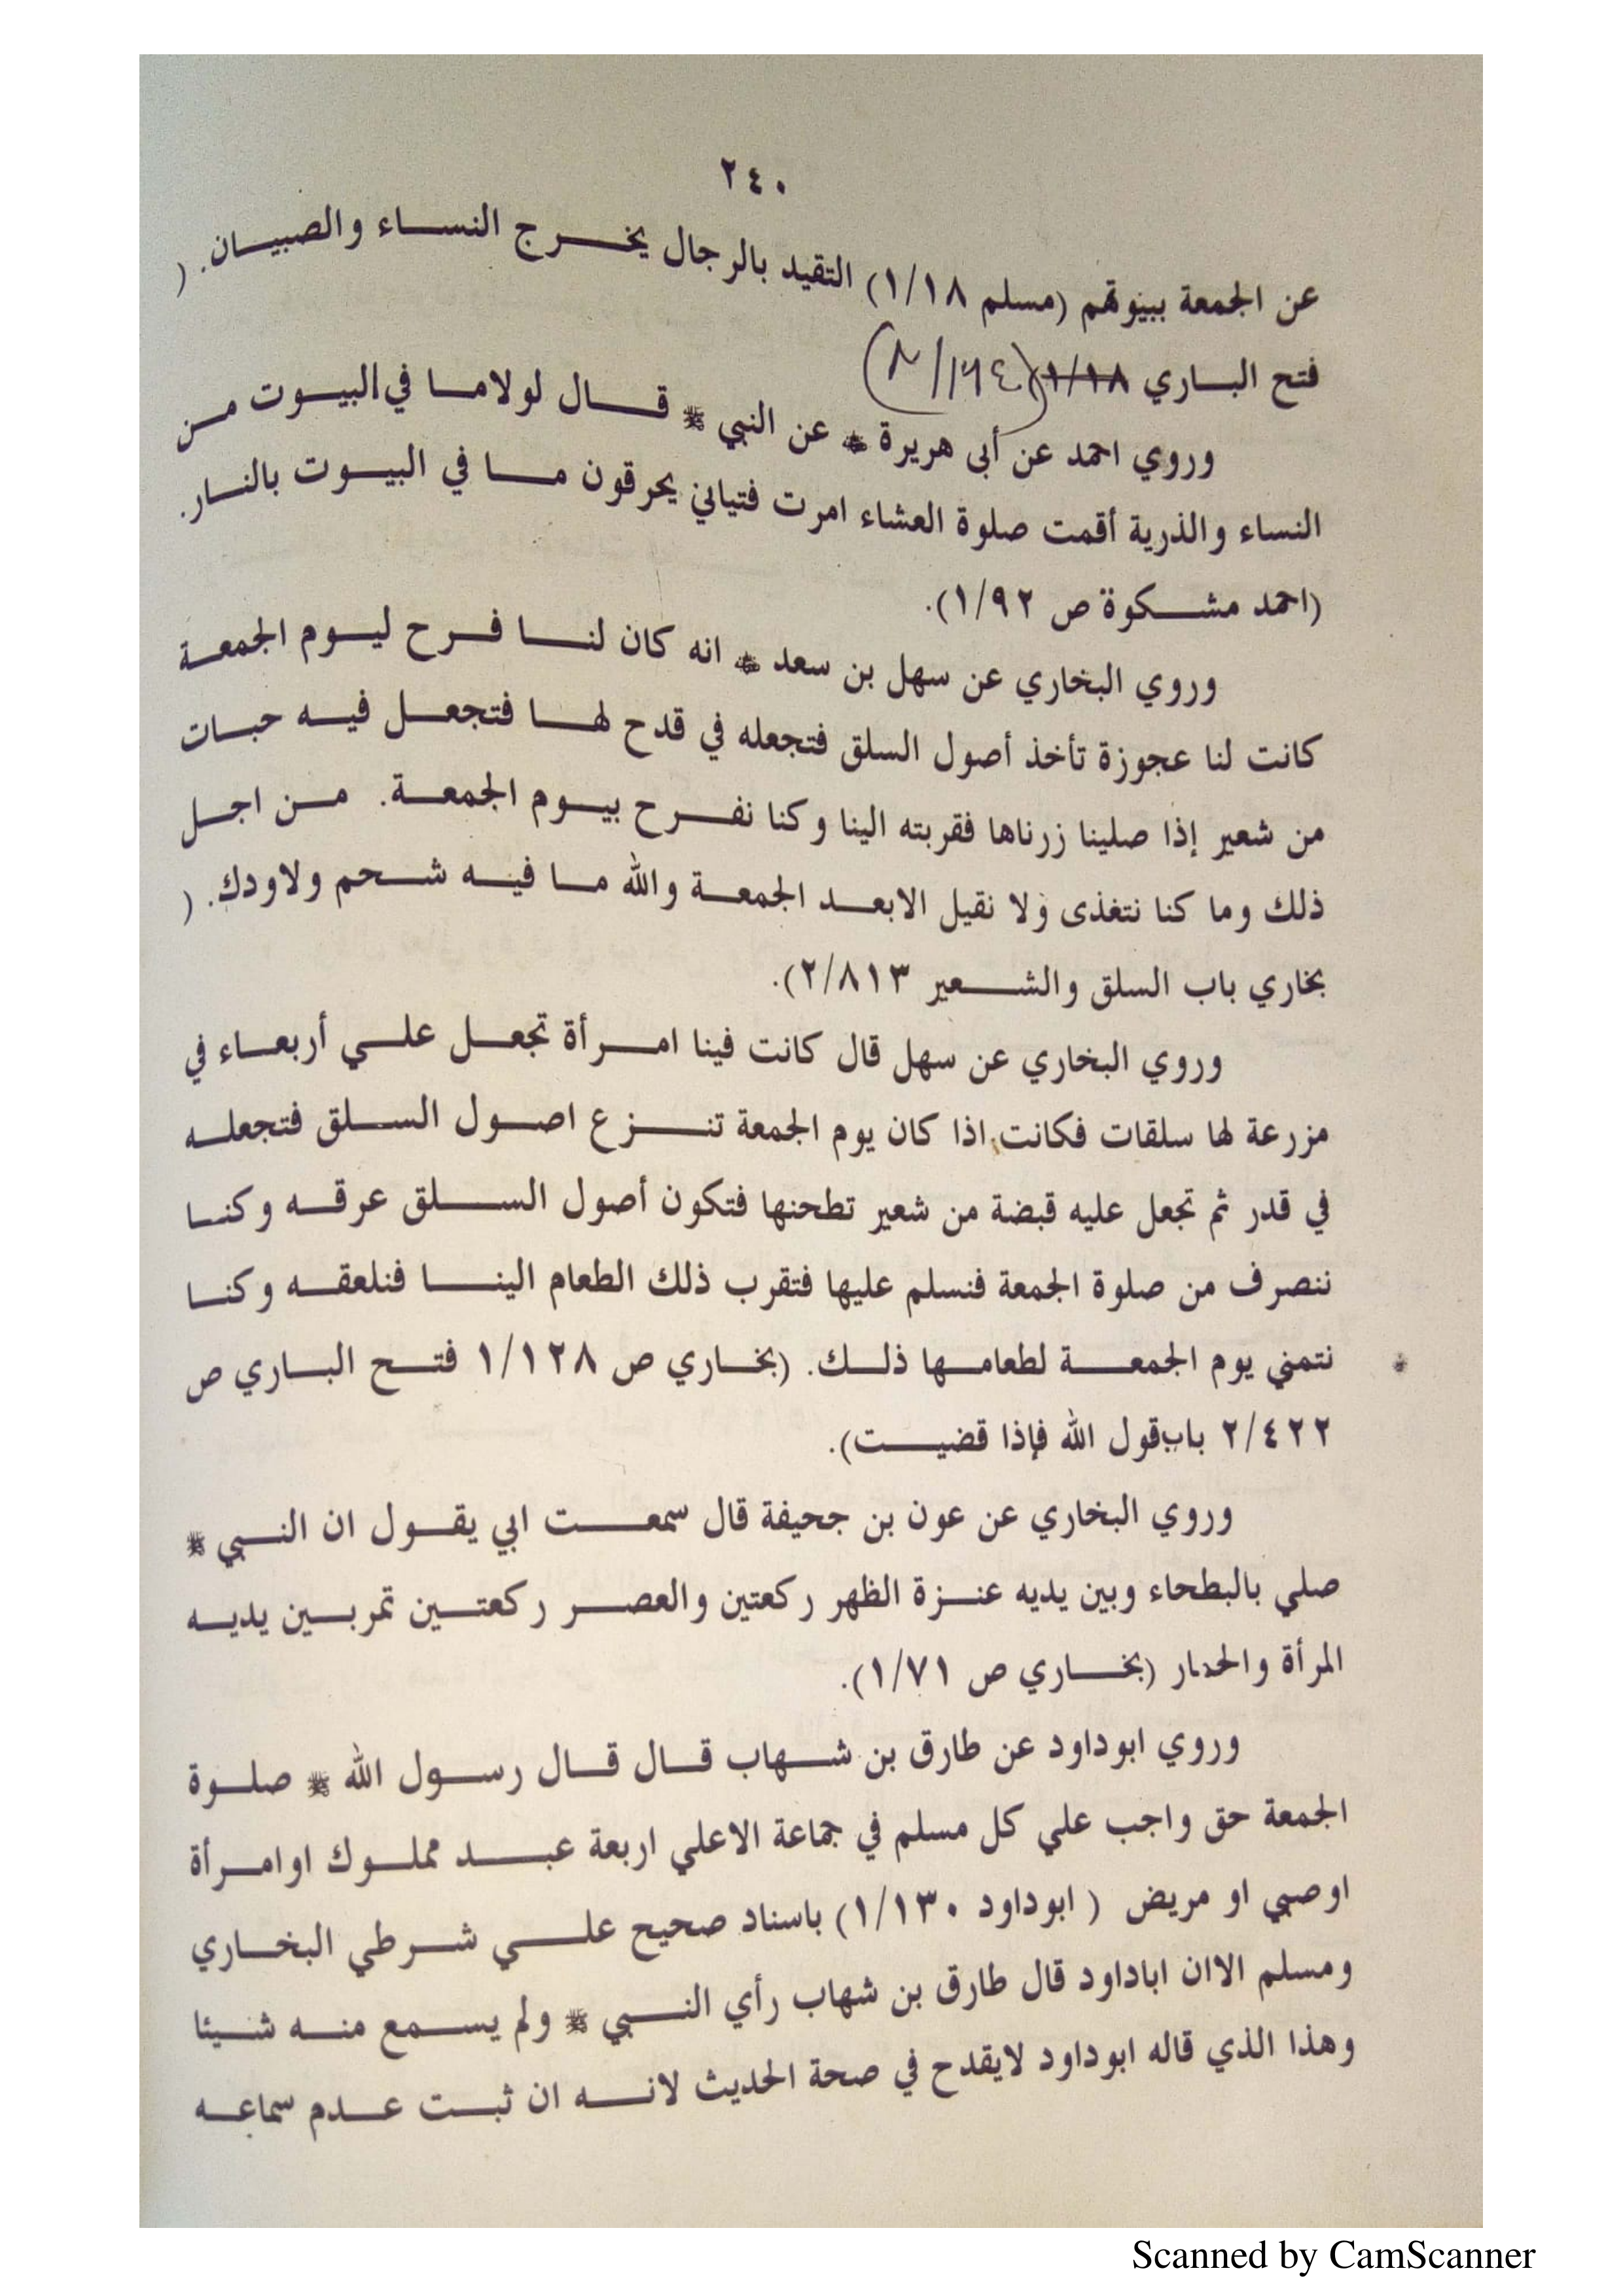 ٢٤٠
عن الجمعة ببيوتهم (مسلم ١/١٨) التقيد بالرجال يخرج النساء والصبيان. (
فتح الباري ١/١٨ (
وروي احمد عن أبى هريرة ﷺ عن النبي ﷺ قال لولاما في البيوت من
النساء والذرية أقمت صلوة العشاء امرت فتياني يحرقون ما في البيوت بالنار.
(احمد مشكوة ص ١/٩٢).
وروي البخاري عن سهل بن سعد انه كان لنا فرح ليوم الجمعة
كانت لنا عجوزة تأخذ أصول السلق فتجعله في قدح لها فتجعل فيه حبات
من شعير إذا صلينا زرناها فقربته الينا وكنا نفرح بيوم الجمعة. من اجل
ذلك وما كنا نتغذى ولا نقيل الابعد الجمعة والله ما فيه شحم ولاودك. (
بخاري باب السلق والشعير ٢/٨١٣).
وروي البخاري عن سهل قال كانت فينا امرأة تجعل علي أربعاء في
مزرعة لها سلقات فكانت اذا كان يوم الجمعة تنزع اصول السلق فتجعله
في قدر ثم تجعل عليه قبضة من شعير تطحنها فتكون أصول السلق عرقه وكنا
ننصرف من صلوة الجمعة فنسلم عليها فتقرب ذلك الطعام الينا فنلعقه وكنا
نتمني يوم الجمعة لطعامها ذلك. (بخاري ص ١/١٢٨ فتح الباري ص
٢/٤٢٢ باب قول الله فإذا قضيت).
وروي البخاري عن عون بن جحيفة قال سمعت ابي يقول ان النبي ﷺ
صلي بالبطحاء وبين يديه عنزة الظهر ركعتين والعصر ركعتين تمربين يديه
المرأة والحمار (بخاري ص ١/٧١).
وروي ابوداود عن طارق بن شهاب قال قال رسول الله ﷺ صلوة
الجمعة حق واجب علي كل مسلم في جماعة الاعلي اربعة عبد مملوك اوامرأة
اوصبي او مريض ( ابوداود ١/١٣٠) باسناد صحيح علي شرطي البخاري
ومسلم الاان اباداود قال طارق بن شهاب رأي النبي ﷺ ولم يسمع منه شيئا
وهذا الذي قاله ابوداود لايقدح في صحة الحديث لانه ان ثبت عدم سماعه
Scanned by CamScanner